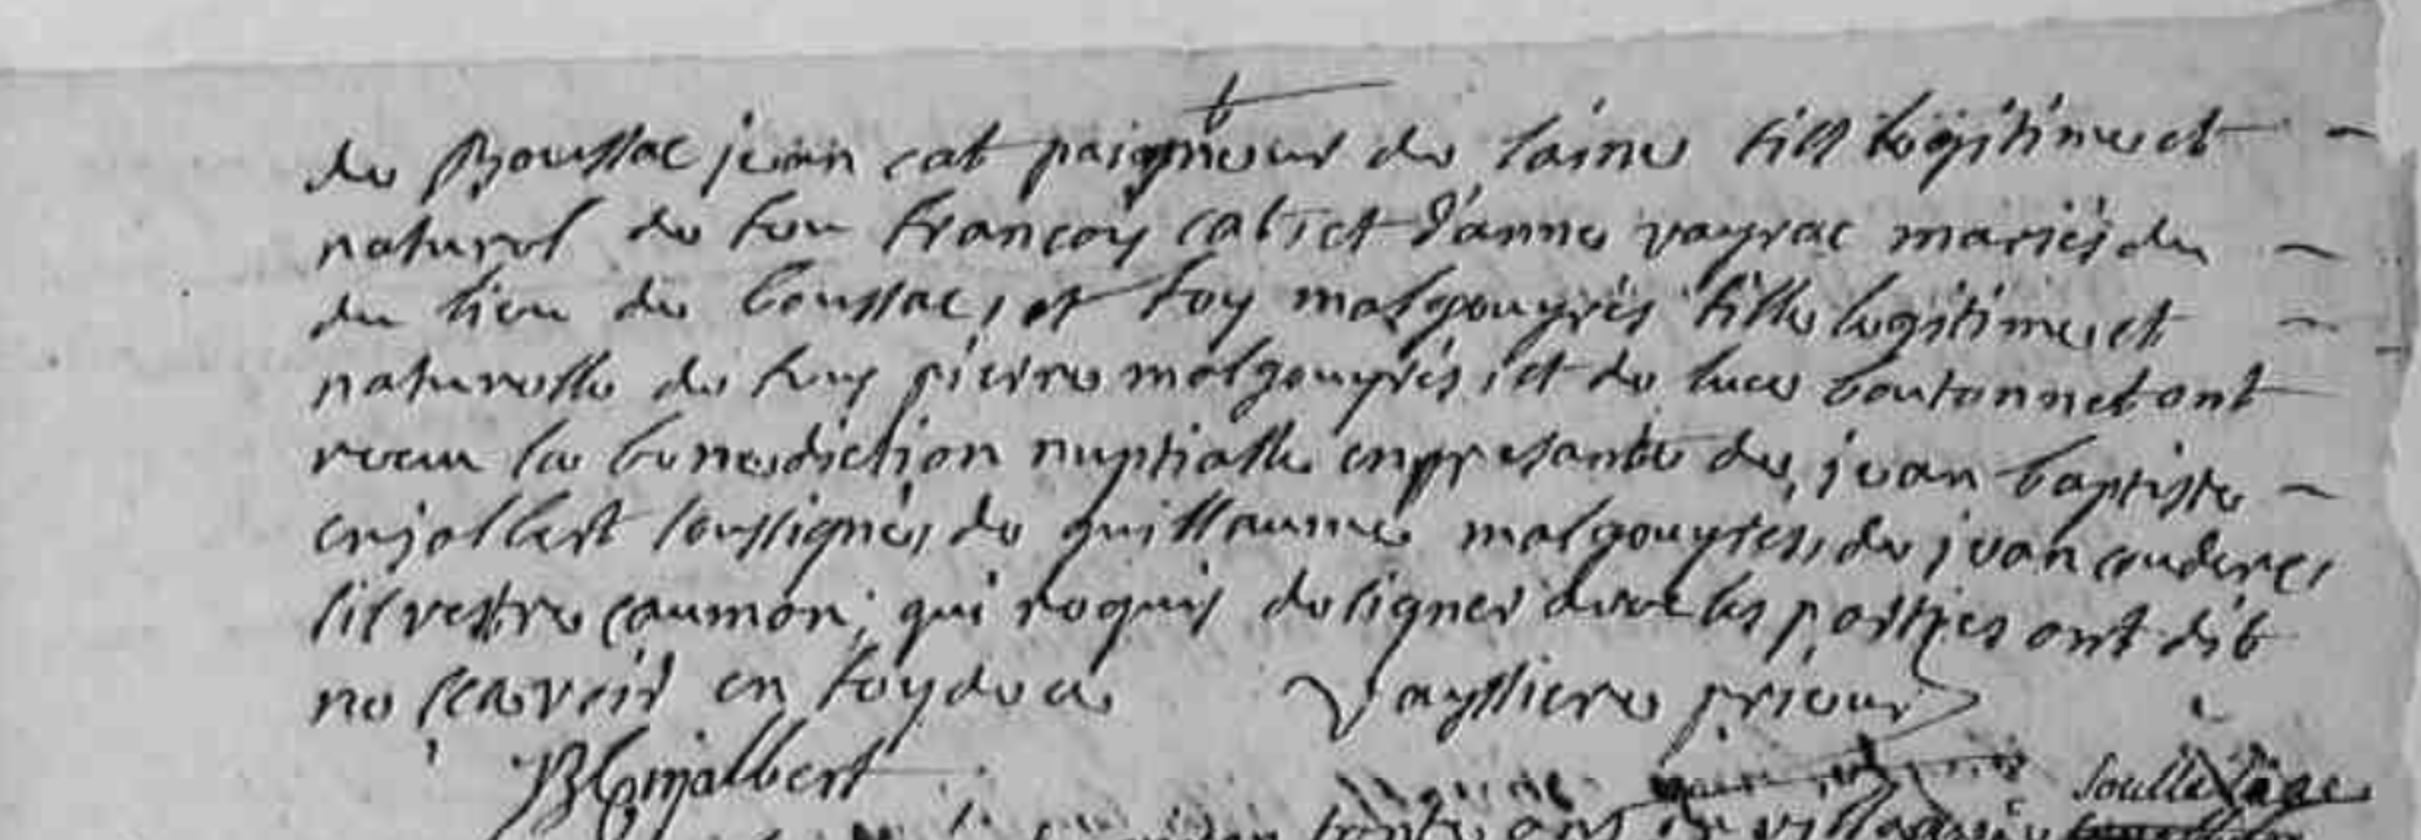 de Boussac jean cat paigneur de laine fils legitime et
naturel de feu françoy cat, et d'anne vayrac mariés du
du lieu de boussac, et foy malgouyrés fille legitime, et
naturelle de feuy pierre malgouyrés, et de luce boutonnet ont
receu la benediction nuptialle en presante de, jean baptiste
enjalbert soussigné, de guillaume malgouyres, de jean couderc,
silvestre caumon, qui requis de signer avec les parties ont dit
ne scavoir en foy de ce Vayssiere prieur
JB Enjalbert